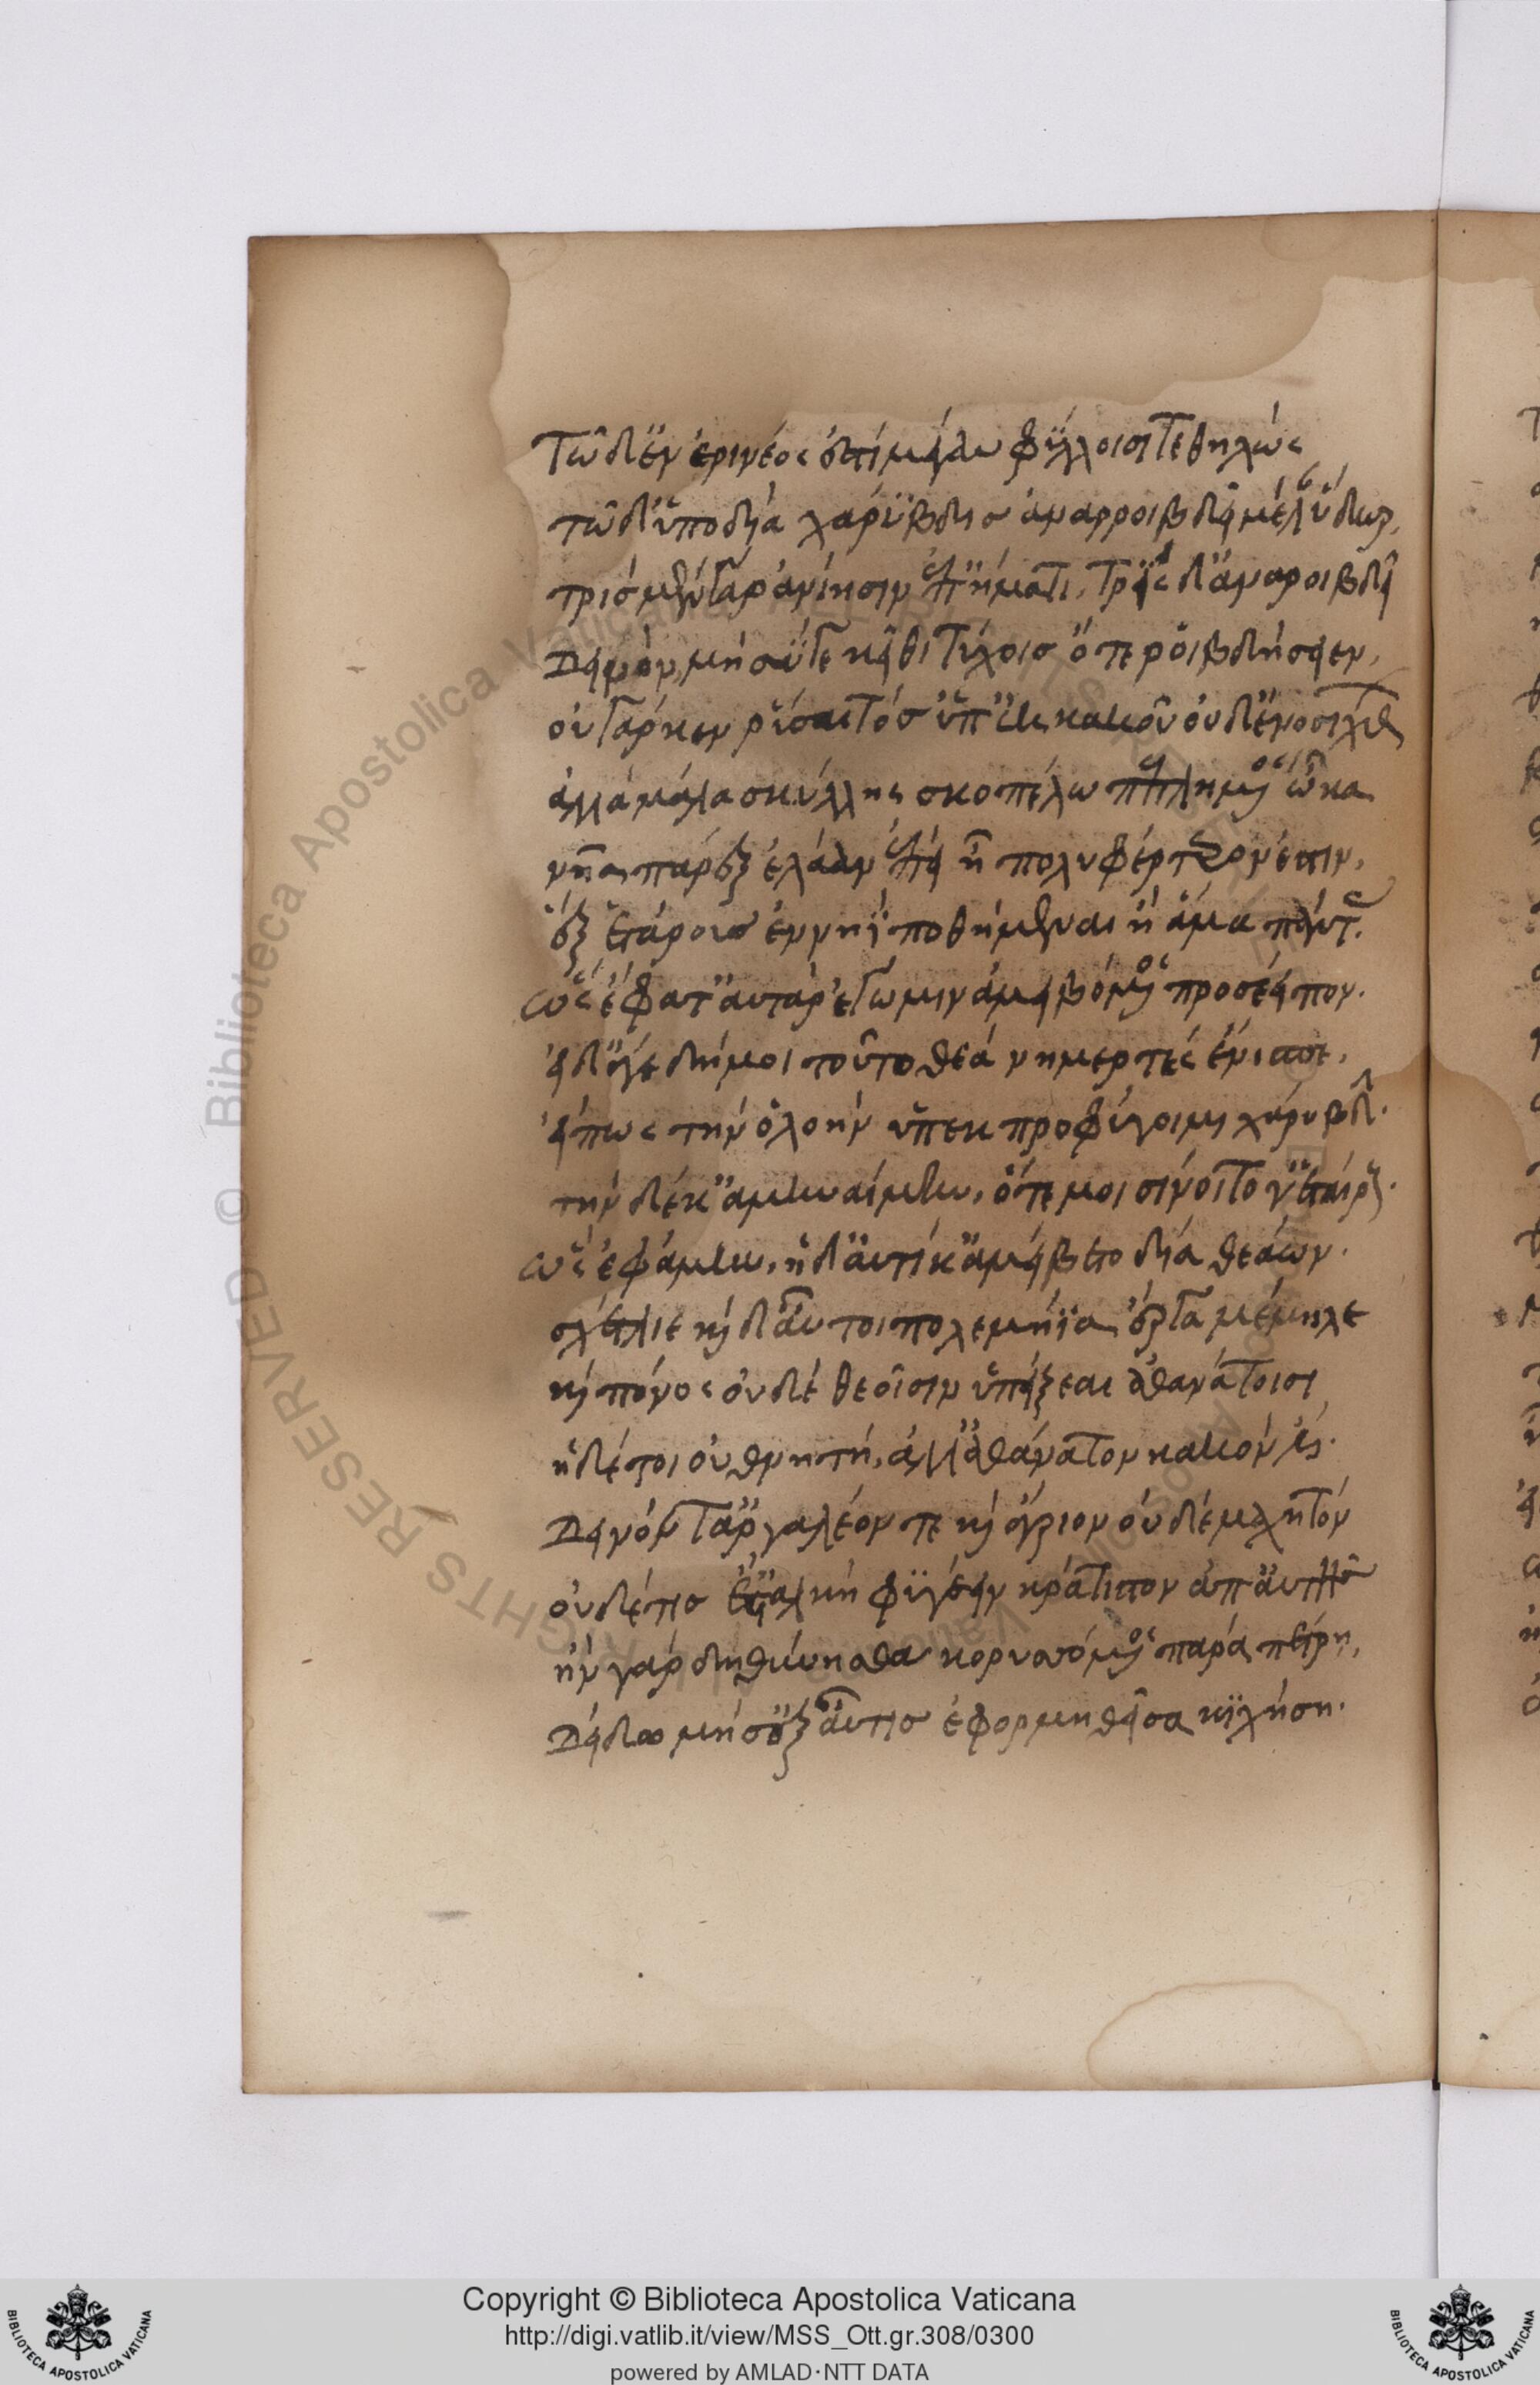 Τῶ δ' ἐν ἐρινεός ἐστι μέγας φύλλοισι τεθηλώς
τῶ δ' ὑπο δῖα χάρυβδις ἀναρροιβδεῖ μέλαν ὕδωρ,
τρὶς μὲν γάρ ἀνίησιν ἐπ' ἤματι, τρὶς δ' ἀναροιβδεῖ
Δεινόν, μὴ σύ γε κεῖθι τύχοις ὅτε ροιβδήσειεν,
οὐ γάρ κεν ρύσαιτό σ' ὑπ' ἐκ κακοῦ οὐδ' ἐνοσίχθων
ἀλλὰ μάλα σκύλλης σκοπέλω πεπλημένος ὦκα
νῆα παρὲξ ἐλάαν ἐπεὶ ἦ πολὺ φέρτερόν ἐστιν,
ἓξ ἑτάρους ἐν νηῒ ποθήμεναι ἢ ἅμα πάντας.
ὣς ἔφατ' αὐτὰρ ἐγώ μιν ἀμειβόμενος προσέειπον.
εἰ δ' ἄγε δή μοι τοῦτο θεά νημερτὲς ἔνισπε,
εἴ πως τὴν ὀλοὴν ὑπεκπροφύγοιμι χάρυβδιν.
τὴν δέ κ' ἀμυναίμην, ὅτε μοι σίνοιτό γ' ἑταίρους.
ὣς ἐφάμην, ἡ δ' αὐτίκ' ἀμείβετο δῖα θεάων.
σχέτλιε καὶ δ' αὖ τοι πολεμήϊα ἔργα μέμηλε
καὶ πόνος οὐδὲ θεοῖσιν ὑπείξεαι ἀθανάτοισι
ἡ δέ τοι οὐ θνητή, ἀλλ' ἀθάνατον κακόν ἐστι.
Δεινόν τ' ἀργαλέον τε καὶ ἄγριον οὐδὲ μαχητόν
οὐδέ τις ἔστ' ἀλκή φυγέειν κράτιστον ἀπ' αὐτῆς
ἢν γὰρ δηθύνησθα κορυσσόμενος παρὰ πέτρη,
Δείδω μή σ' ἐξαῦτις ἐφορμηθεῖσα κιχήση.
Copyright © Biblioteca Apostolica Vaticana
http://digi.vatlib.it/view/MSS_Ott.gr.308/0300
powered by AMLAD·NTT DATA